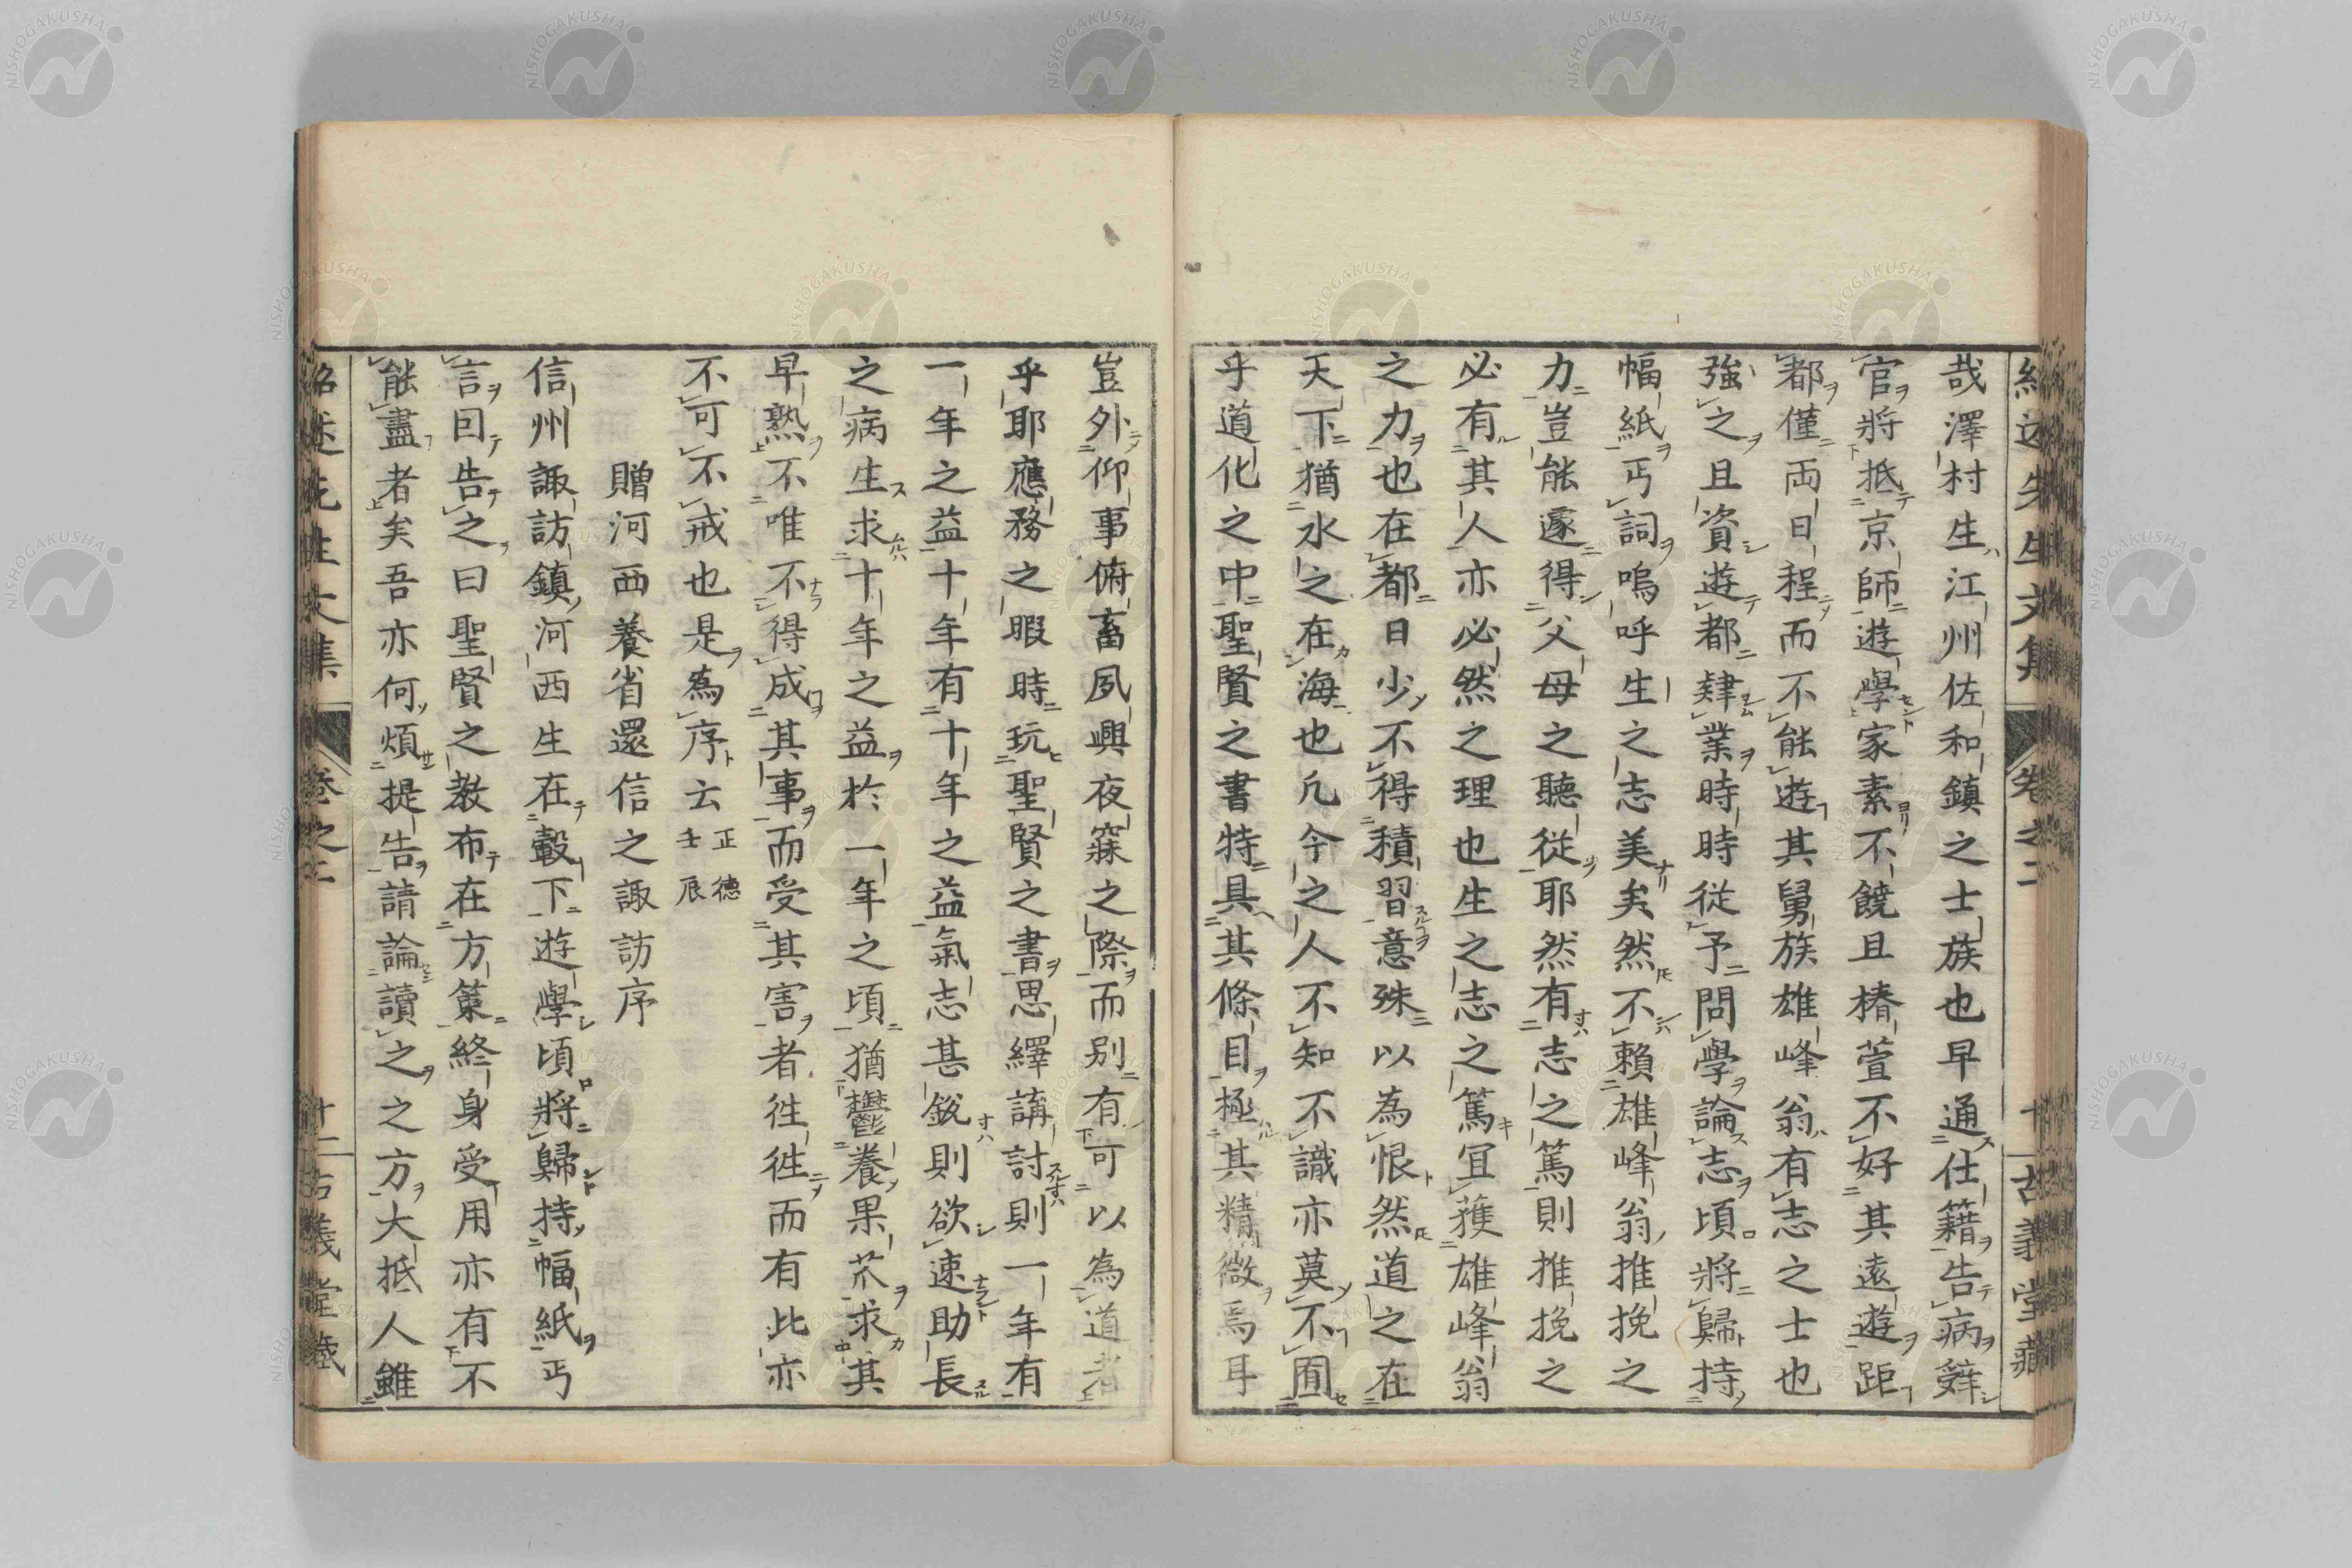 紹述先生文集 卷之二 十 古義堂藏
哉澤村生江州佐和鎮之士族也早通仕籍告病辭
官將抵京師遊學家素不饒且椿萱不好其遠遊距
都僅両日程而不能遊其舅族雄峰翁有志之士也
強之且資遊都肄業時時從予問學論志頃將歸持
幅紙丐詞嗚呼生之志美矣然不賴雄峰翁推挽之
力豈能遽得父母之聽從耶然有志之篤則推挽之
必有其人亦必然之理也生之志之篤冝獲雄峰翁
之力也在都日少不得積習意殊以為恨然道之在
天下猶水之在海也凢今之人不知不識亦莫不囿
乎道化之中聖賢之書特具其條目極其精微焉耳
豈外仰事俯畜夙興夜寐之際而别有可以為道者
乎耶應務之暇時玩聖賢之書思繹講討則一年有
一年之益十年有十年之益氣志甚銳則欲速助長
之病生求十年之益於一年之頃猶鬱養果苽求其
早熟不唯不得成其事而受其害者徃徃而有此亦
不可不戒也是為序云 正德壬辰
贈河西養省還信之諏訪序
信州諏訪鎮河西生在轂下遊學頃將歸持幅紙丐
言囙告之曰聖賢之教布在方策終身受用亦有不
能盡者矣吾亦何煩提告請論讀之之方大抵人雖
紹述先生文集 卷之二 十二 古義堂藏